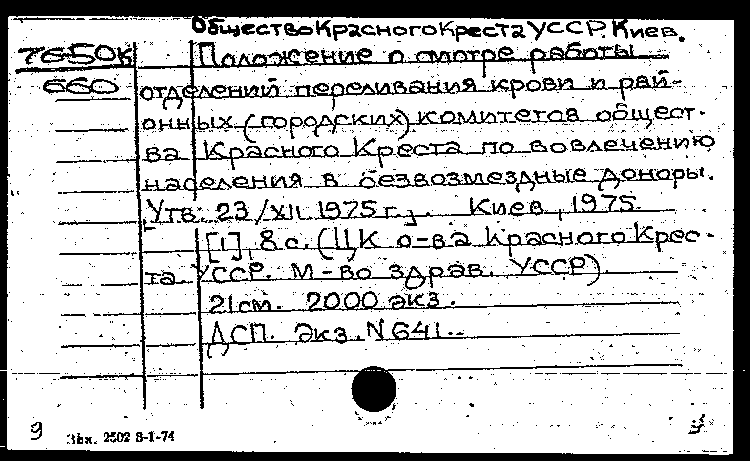 Общество Красного Креста УССР. Киев.
7650к Положение о смотре работы
660 отделений переливания крови и рай-
онных (городских) комитетов общест-
ва Красного Креста по вовлечению
населения в безвозмездные доноры.
Утв. 23/XII 1975 г., Киев, 1975.
[1], 8 с. (ЦК о-ва Красного Крес-
та УССР. М-во здрав. УССР).
21 см. 2000 экз.
ДСП. Экз. N 641.
9 Зак. 2502 8-1-74